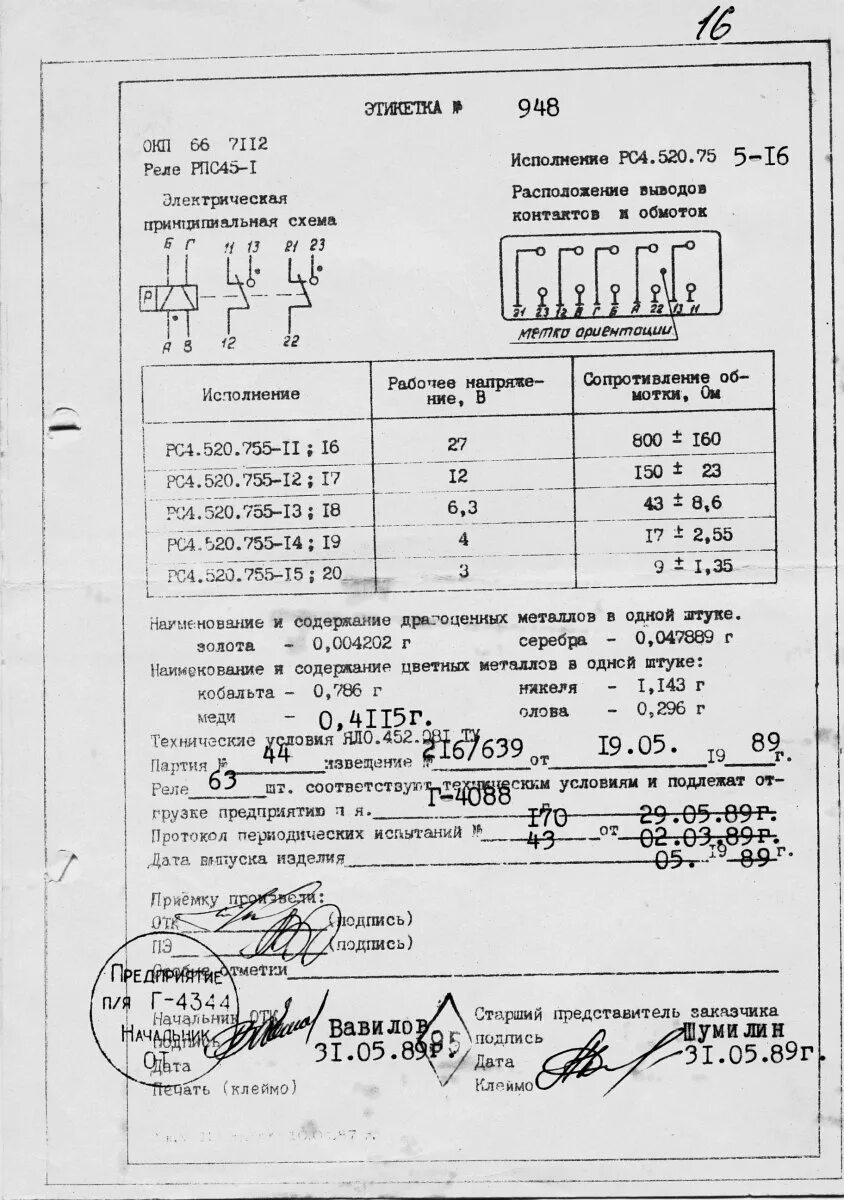 16
ЭТИКЕТКА № 948
ОКП 66 7112
Реле РПС45-1
Исполнение РС4.520.75 5-16
Электрическая
принципиальная схема
Расположение выводов
контактов и обмоток
Б Г 11 13 21 23
Р
А В 12 22
21 23 12 В Г Б А 22 13 11
метка ориентации
Исполнение
Рабочее напряже-
ние, В
Сопротивление об-
мотки, Ом
РС4.520.755-11; 16 27 800 ± 160
РС4.520.755-12; 17 12 150 ± 23
РС4.520.755-13; 18 6,3 43 ± 8,6
РС4.520.755-14; 19 4 17 ± 2,55
РС4.520.755-15; 20 3 9 ± 1,35
Наименование и содержание драгоценных металлов в одной штуке.
золота - 0,004202 г серебра - 0,047889 г
Наименование и содержание цветных металлов в одной штуке:
кобальта - 0,786 г никеля - 1,143 г
меди - 0,4115г. олова - 0,296 г
Технические условия ЯЛ0.452.081 ТУ
Партия № 44 извещение № 216/639 от 19.05. 19 89 г.
Реле 63 шт. соответствуют техническим условиям и подлежат от-
грузке предприятию п я. Г-4088
170 29.05.89г.
Протокол периодических испытаний № 43 от 02.03.89г.
Дата выпуска изделия 05. 19 89 г.
Приёмку произвели:
ОТК (подпись)
ПЗ (подпись)
Особые отметки
Предприятие
п/я Г-4344
Начальник
ОТ
Начальник ОТК Вавилов
подпись
Дата 31.05.89г.
Печать (клеймо)
Старший представитель заказчика
подпись Шумилин
Дата 31.05.89г.
Клеймо